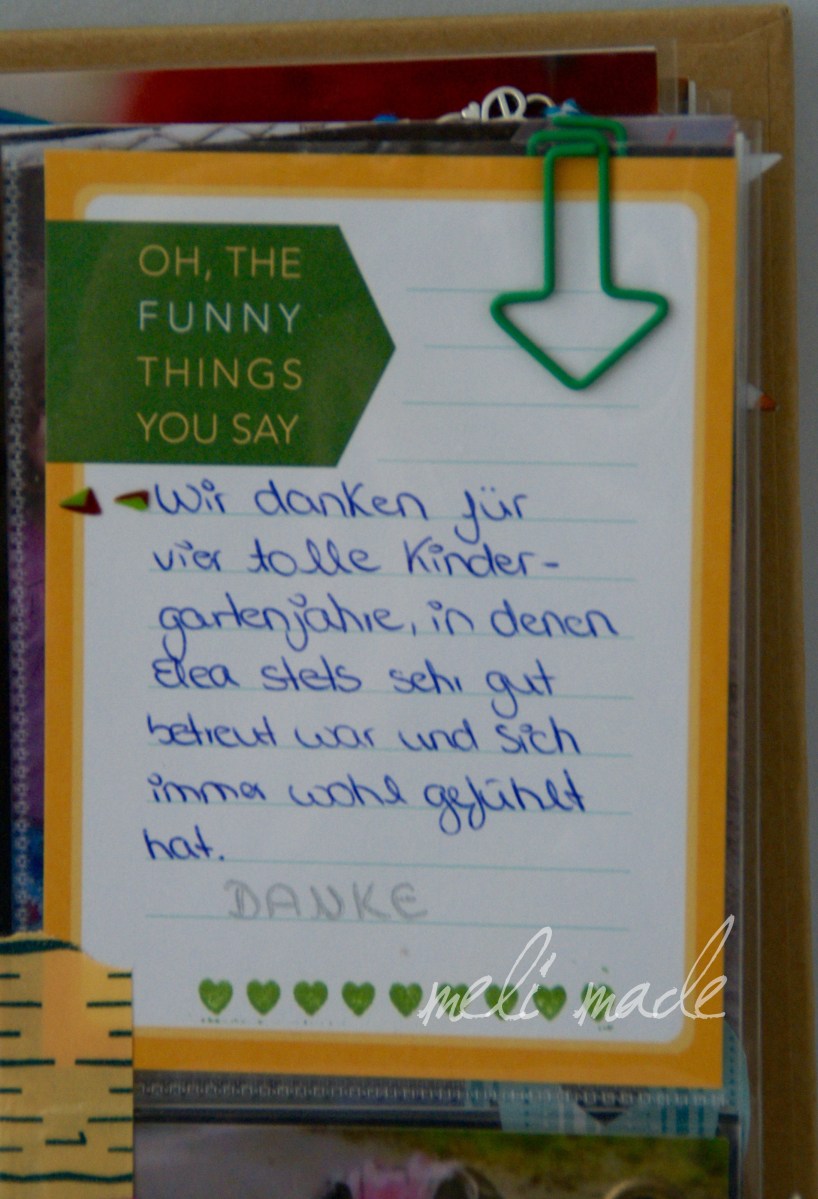 OH, THE
FUNNY
THINGS
YOU SAY
Wir danken für
vier tolle Kinder-
gartenjahre, in denen
Elea stets sehr gut
betreut war und sich
immer wohl gefühlt
hat.
DANKE
meli made
1